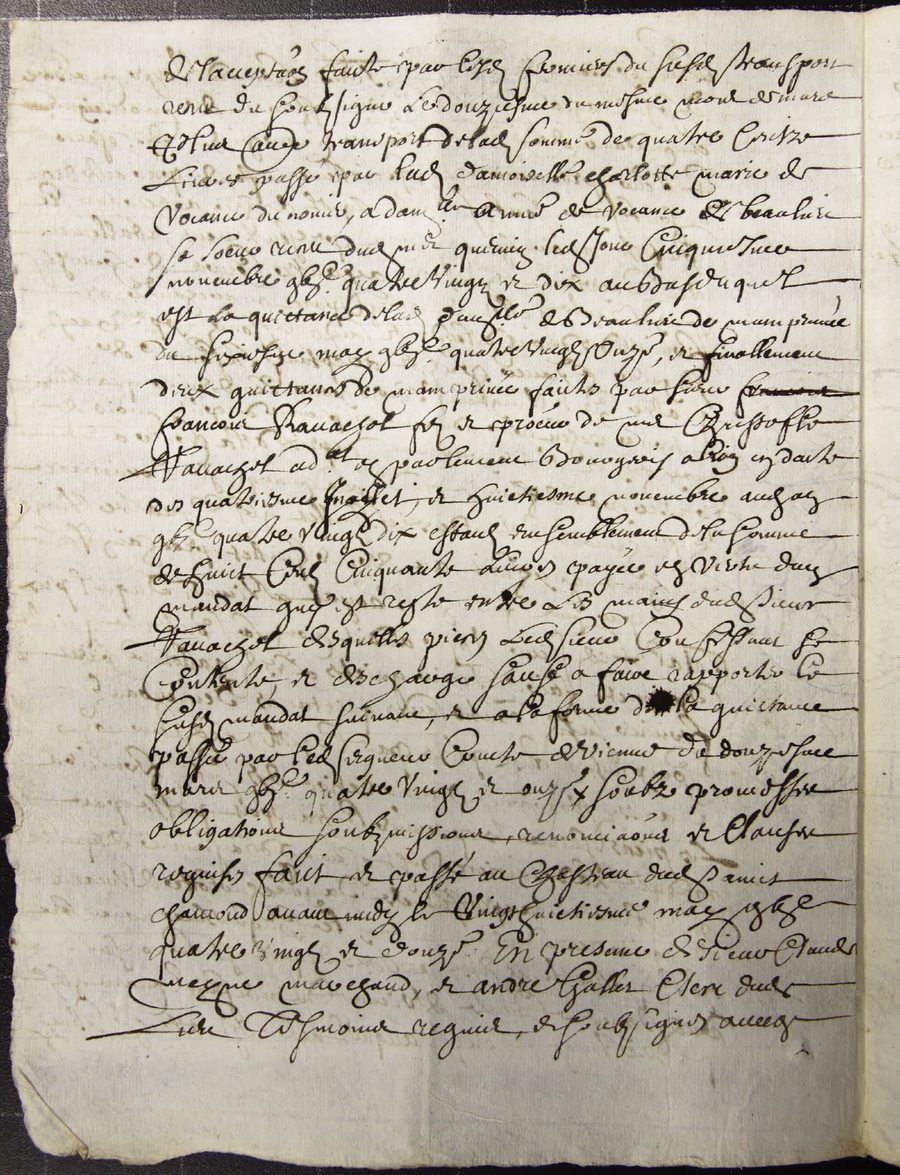 de lacceptaon faicte par lesd fermiers du susd transport
receu du soubzsigné le douziesme du mesme mois de mars
plus autre transport de lad somme de quatre cent
Livres passé par lad damoiselle charlotte marie de
Vocance du nomier, a dam.lle Anne de vocance de beaulieu
sa soeur receu dud me led jour cinquiesme
novembre gbic quatre vingt et dix au bas duquel
est la quictance delad dam.lle de Beaulieu de main privée
du may gbic quatre vingt Onze, et finallement
deux quittances de main privée faites par sieur
françois Ravachol fr et procur de me Christofle
Ravachol ad.at en parlement Bourgeois a en datte
des quatriesme Juillet, et huictiesme novembre aud an
gbic quatre vingt dix estant ensemblement de la somme
de huict Cent Cinquante Livres payée en vertu dud
mandat qui est resté entre Les mains dud Sieur
Ravachol desquelles pieces Led sieur Confessant se
Contente, et descharge sauf a faire rapporter le
susd mandat suivant, et a la forme de la quictance
passée par led seigneur Comte de vienne du douziesme
mars gbic quatre vingt et onze soubz promesses
obligations soubzmissions, renonciaons et Clauses
requises faict et passé au Chasteau dud Sainct
chamond avant midy le Vingt huictiesme may gbic
quatre vingt et douze En presence de sieur Claude
marchand, et andré Clerc dud
Lieu Tesmoins requis, et soubzsignés avec